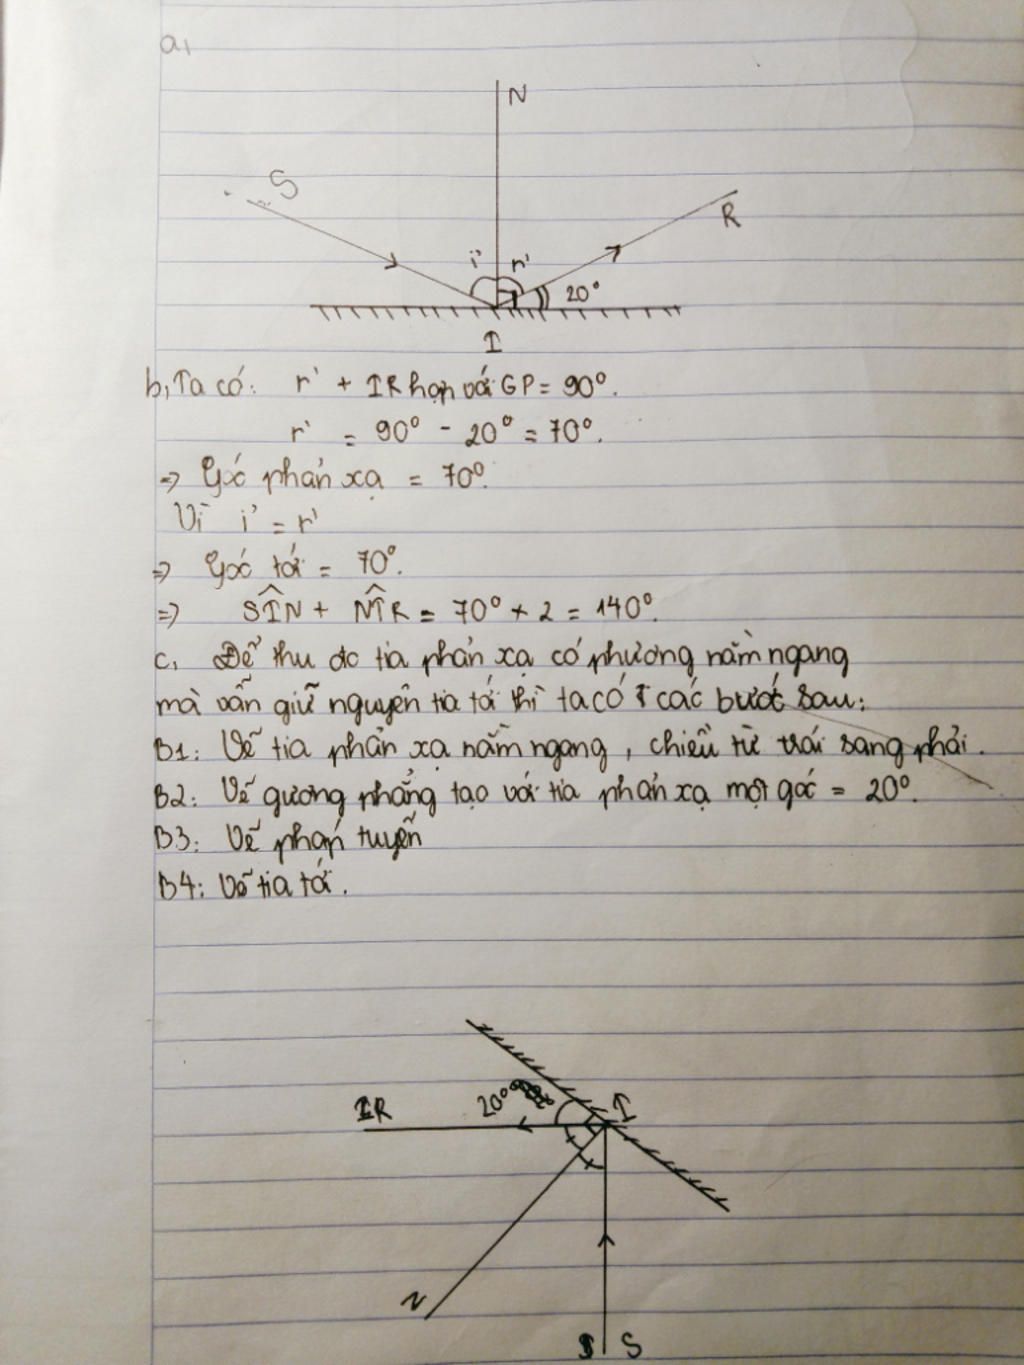 a,
N
S
R
i' r'
20°
I
b, Ta có: r' + IR hợp với GP = 90°.
r' = 90° - 20° = 70°.
=> Góc phản xạ = 70°.
Vì i' = r'
=> Góc tới = 70°.
=> SÎN + NÎR = 70° × 2 = 140°.
c, Để thu đc tia phản xạ có phương nằm ngang
mà vẫn giữ nguyên tia tới thì ta có các bước sau:
B1: Vẽ tia phản xạ nằm ngang, chiều từ trái sang phải.
B2: Vẽ gương phẳng tạo với tia phản xạ một góc = 20°.
B3: Vẽ pháp tuyến
B4: Vẽ tia tới.
20°
I
R
N
S